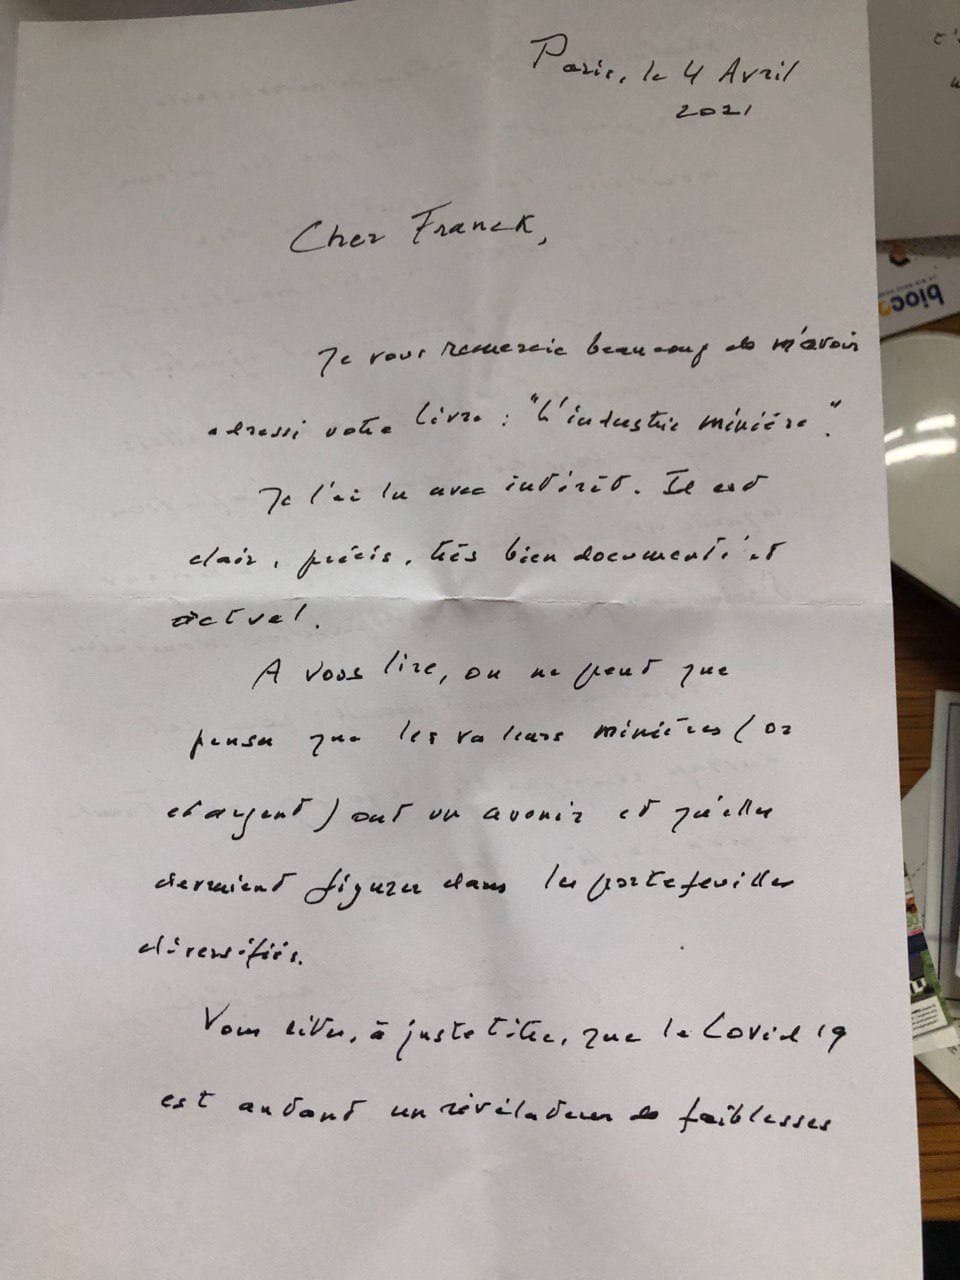 Paris, le 4 Avril
2021
Cher Franck,
Je vous remercie beaucoup de m'avoir
adressé votre livre : "L'industrie minière".
Je l'ai lu avec intérêt. Il est
clair, précis, très bien documenté et
actuel.
A vous lire, on ne peut que
penser que les valeurs minières (or
et argent) ont un avenir et qu'elles
devraient figurer dans les portefeuilles
diversifiés.
Vous citez, à juste titre, que le Covid 19
est autant un révélateur de faiblesses
bioco